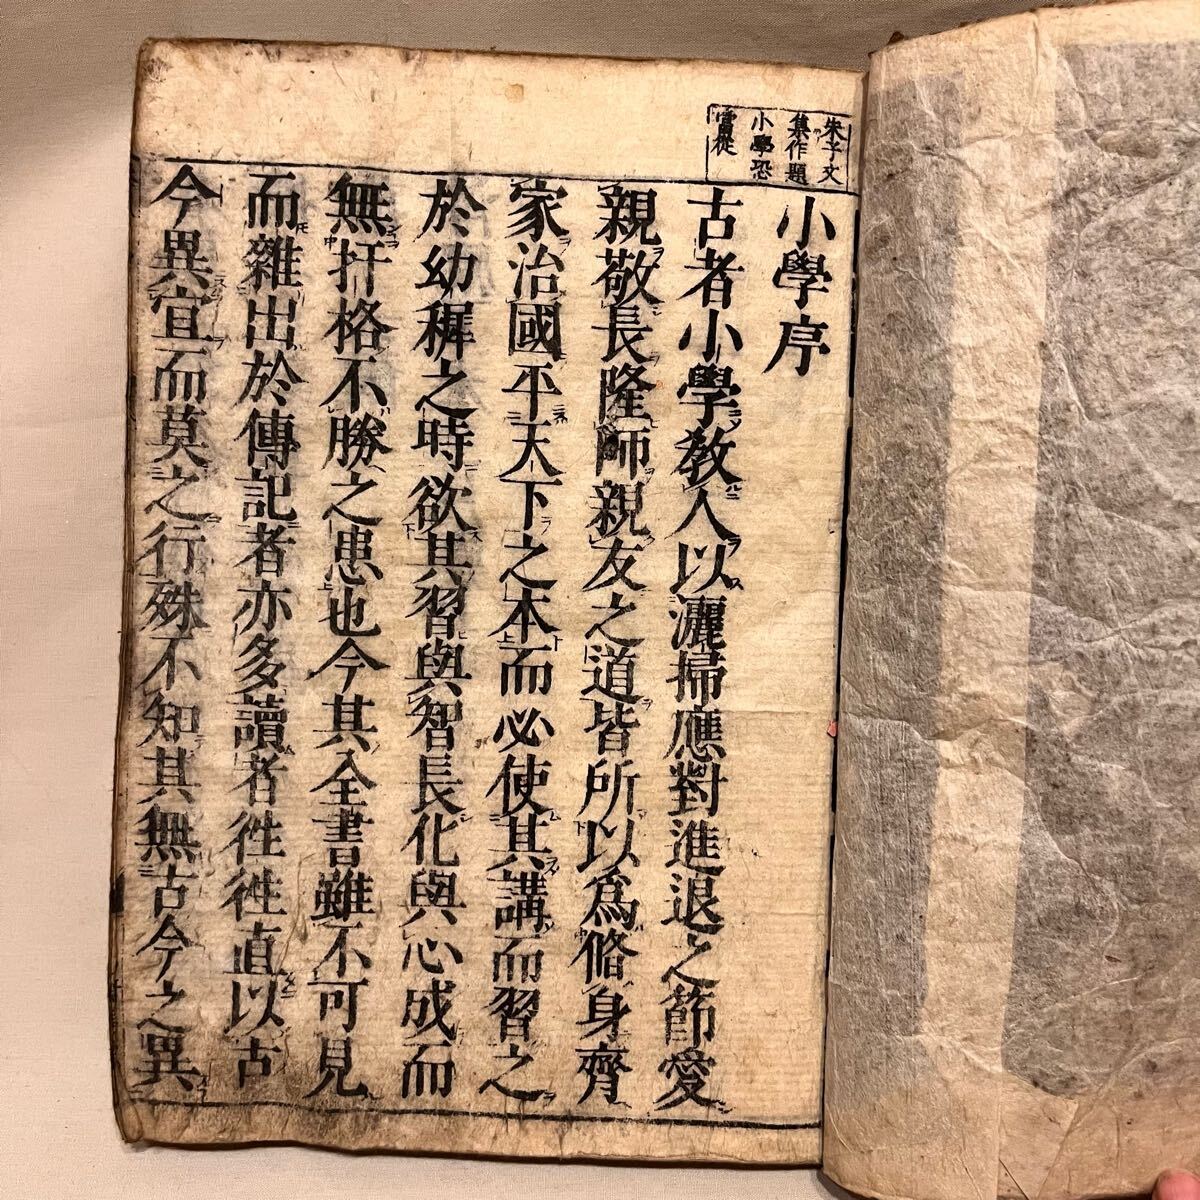 朱子文
集作題
小學恐
當從
小學序
古者小學教人以灑掃應對進退之節愛
親敬長隆師親友之道皆所以爲脩身齊
家治國平天下之本而必使其講而習之
於幼穉之時欲其習與智長化與心成而
無扞格不勝之患也今其全書雖不可見
而雜出於傳記者亦多讀者徃徃直以古
今異宜而莫之行殊不知其無古今之異